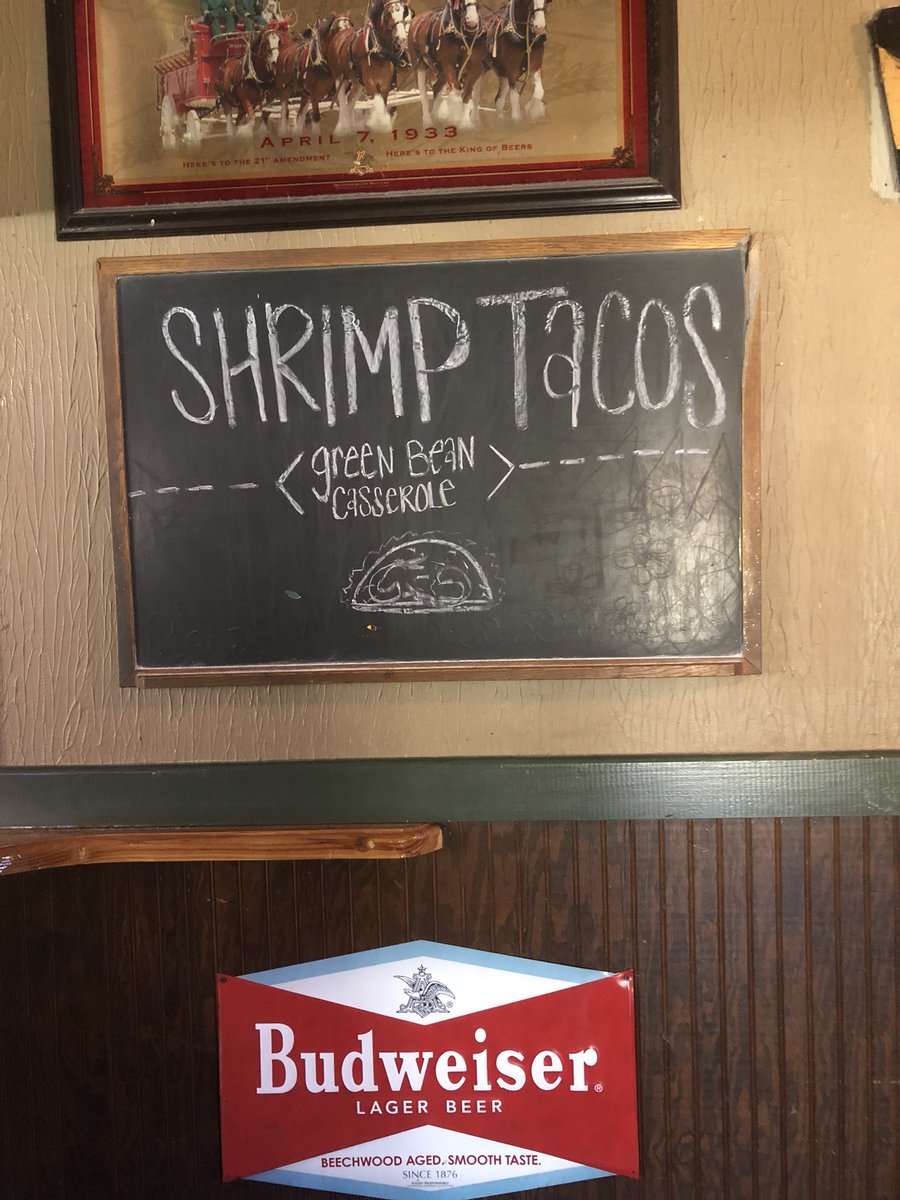 APRIL 7, 1933
HERE'S TO THE 21ST AMENDMENT HERE'S TO THE KING OF BEERS
SHRIMP TacOS
green Bean
casserole
Budweiser®
LAGER BEER
BEECHWOOD AGED. SMOOTH TASTE.
SINCE 1876